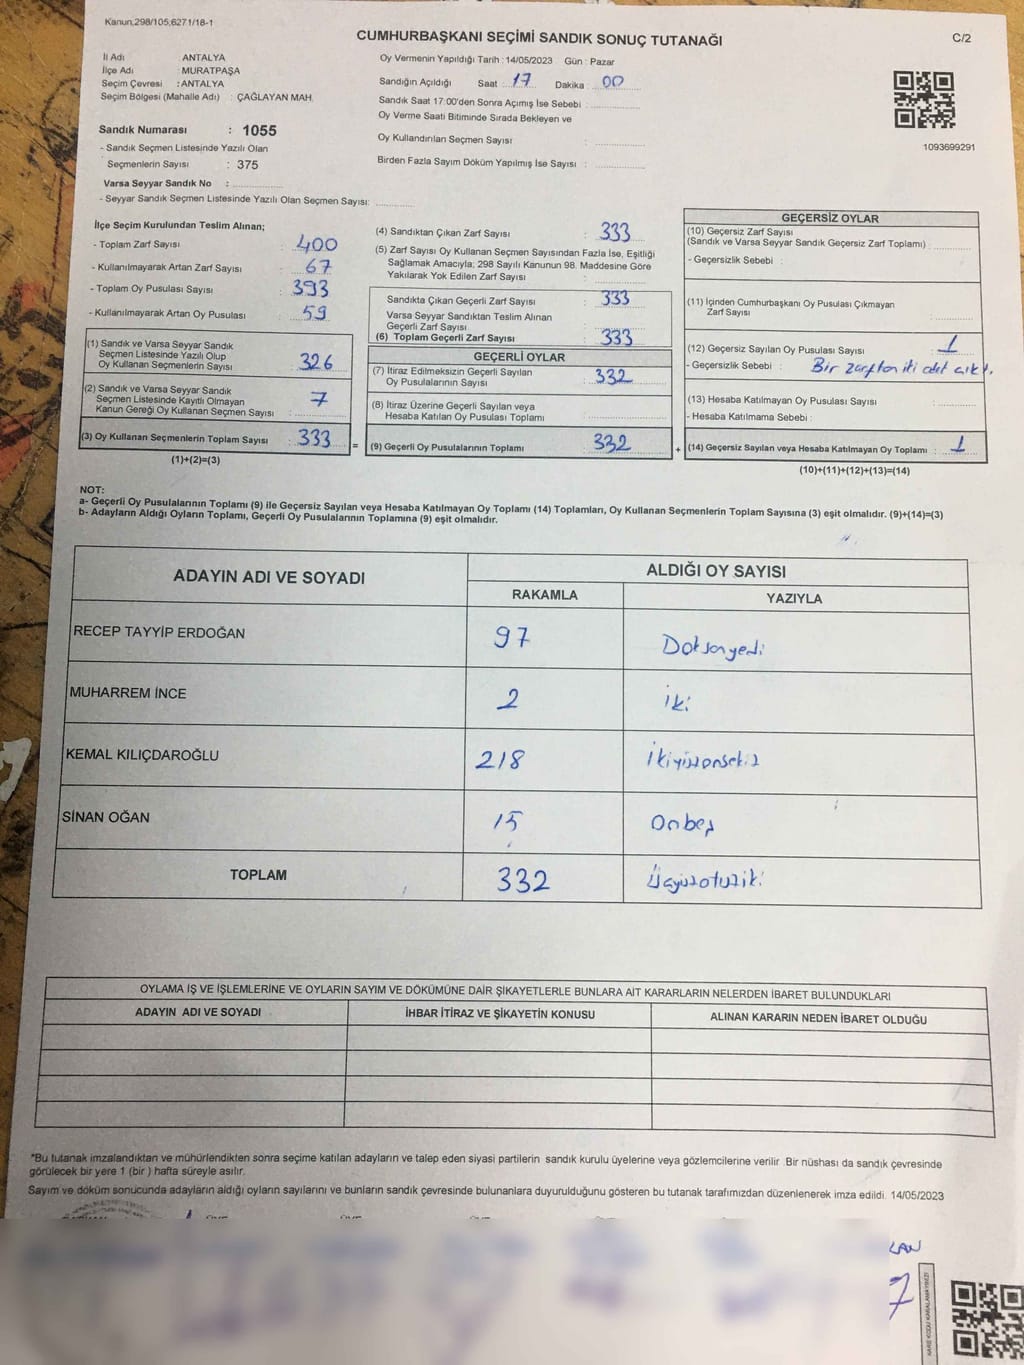 Kanun,298/105;6271/18-1
CUMHURBAŞKANI SEÇİMİ SANDIK SONUÇ TUTANAĞI
C/2
İl Adı : ANTALYA
İlçe Adı : MURATPAŞA
Seçim Çevresi : ANTALYA
Seçim Bölgesi (Mahalle Adı) : ÇAĞLAYAN MAH.
Sandık Numarası : 1055
- Sandık Seçmen Listesinde Yazılı Olan
Seçmenlerin Sayısı : 375
Varsa Seyyar Sandık No :
- Seyyar Sandık Seçmen Listesinde Yazılı Olan Seçmen Sayısı:
Oy Vermenin Yapıldığı Tarih : 14/05/2023 Gün : Pazar
Sandığın Açıldığı Saat 17 Dakika : 00
Sandık Saat 17:00'den Sonra Açımış İse Sebebi :
Oy Verme Saati Bitiminde Sırada Bekleyen ve
Oy Kullandırılan Seçmen Sayısı :
Birden Fazla Sayım Döküm Yapılmış İse Sayısı :
1093699291
İlçe Seçim Kurulundan Teslim Alınan;
- Toplam Zarf Sayısı : 400
- Kullanılmayarak Artan Zarf Sayısı : 67
- Toplam Oy Pusulası Sayısı : 393
- Kullanılmayarak Artan Oy Pusulası : 59
(1) Sandık ve Varsa Seyyar Sandık
Seçmen Listesinde Yazılı Olup
Oy Kullanan Seçmenlerin Sayısı : 326
(2) Sandık ve Varsa Seyyar Sandık
Seçmen Listesinde Kayıtlı Olmayan
Kanun Gereği Oy Kullanan Seçmen Sayısı : 7
(3) Oy Kullanan Seçmenlerin Toplam Sayısı : 333
(1)+(2)=(3)
=
(4) Sandıktan Çıkan Zarf Sayısı : 333
(5) Zarf Sayısı Oy Kullanan Seçmen Sayısından Fazla İse, Eşitliği
Sağlamak Amacıyla; 298 Sayılı Kanunun 98. Maddesine Göre
Yakılarak Yok Edilen Zarf Sayısı :
Sandıkta Çıkan Geçerli Zarf Sayısı : 333
Varsa Seyyar Sandıktan Teslim Alınan
Geçerli Zarf Sayısı :
(6) Toplam Geçerli Zarf Sayısı : 333
GEÇERLİ OYLAR
(7) İtiraz Edilmeksizin Geçerli Sayılan
Oy Pusulalarının Sayısı : 332
(8) İtiraz Üzerine Geçerli Sayılan veya
Hesaba Katılan Oy Pusulası Toplamı :
(9) Geçerli Oy Pusulalarının Toplamı : 332
+
GEÇERSİZ OYLAR
(10) Geçersiz Zarf Sayısı
(Sandık ve Varsa Seyyar Sandık Geçersiz Zarf Toplamı) :
- Geçersizlik Sebebi :
(11) İçinden Cumhurbaşkanı Oy Pusulası Çıkmayan
Zarf Sayısı :
(12) Geçersiz Sayılan Oy Pusulası Sayısı : 1
- Geçersizlik Sebebi : Bir zarftan iki adet çıktı.
(13) Hesaba Katılmayan Oy Pusulası Sayısı :
- Hesaba Katılmama Sebebi :
(14) Geçersiz Sayılan veya Hesaba Katılmayan Oy Toplamı : 1
(10)+(11)+(12)+(13)=(14)
NOT:
a- Geçerli Oy Pusulalarının Toplamı (9) ile Geçersiz Sayılan veya Hesaba Katılmayan Oy Toplamı (14) Toplamları, Oy Kullanan Seçmenlerin Toplam Sayısına (3) eşit olmalıdır. (9)+(14)=(3)
b- Adayların Aldığı Oyların Toplamı, Geçerli Oy Pusulalarının Toplamına (9) eşit olmalıdır.
ADAYIN ADI VE SOYADI
ALDIĞI OY SAYISI
RAKAMLA YAZIYLA
RECEP TAYYİP ERDOĞAN 97 Doksanyedi
MUHARREM İNCE 2 iki
KEMAL KILIÇDAROĞLU 218 ikiyüzonsekiz
SİNAN OĞAN 15 Onbeş
TOPLAM 332 Üçyüzotuziki
OYLAMA İŞ VE İŞLEMLERİNE VE OYLARIN SAYIM VE DÖKÜMÜNE DAİR ŞİKAYETLERLE BUNLARA AİT KARARLARIN NELERDEN İBARET BULUNDUKLARI
ADAYIN ADI VE SOYADI İHBAR İTİRAZ VE ŞİKAYETİN KONUSU ALINAN KARARIN NEDEN İBARET OLDUĞU
*Bu tutanak imzalandıktan ve mühürlendikten sonra seçime katılan adayların ve talep eden siyasi partilerin sandık kurulu üyelerine veya gözlemcilerine verilir. Bir nüshası da sandık çevresinde
görülecek bir yere 1 (bir ) hafta süreyle asılır.
Sayım ve döküm sonucunda adayların aldığı oyların sayılarını ve bunların sandık çevresinde bulunanlara duyurulduğunu gösteren bu tutanak tarafımızdan düzenlenerek imza edildi. 14/05/2023
KARE KODU KARALAMAYINIZ!